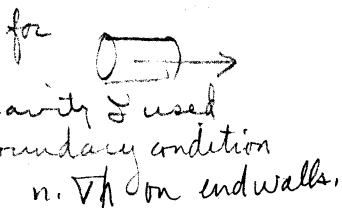 for
cavity I used
boundary condition
n. ∇h on endwalls.